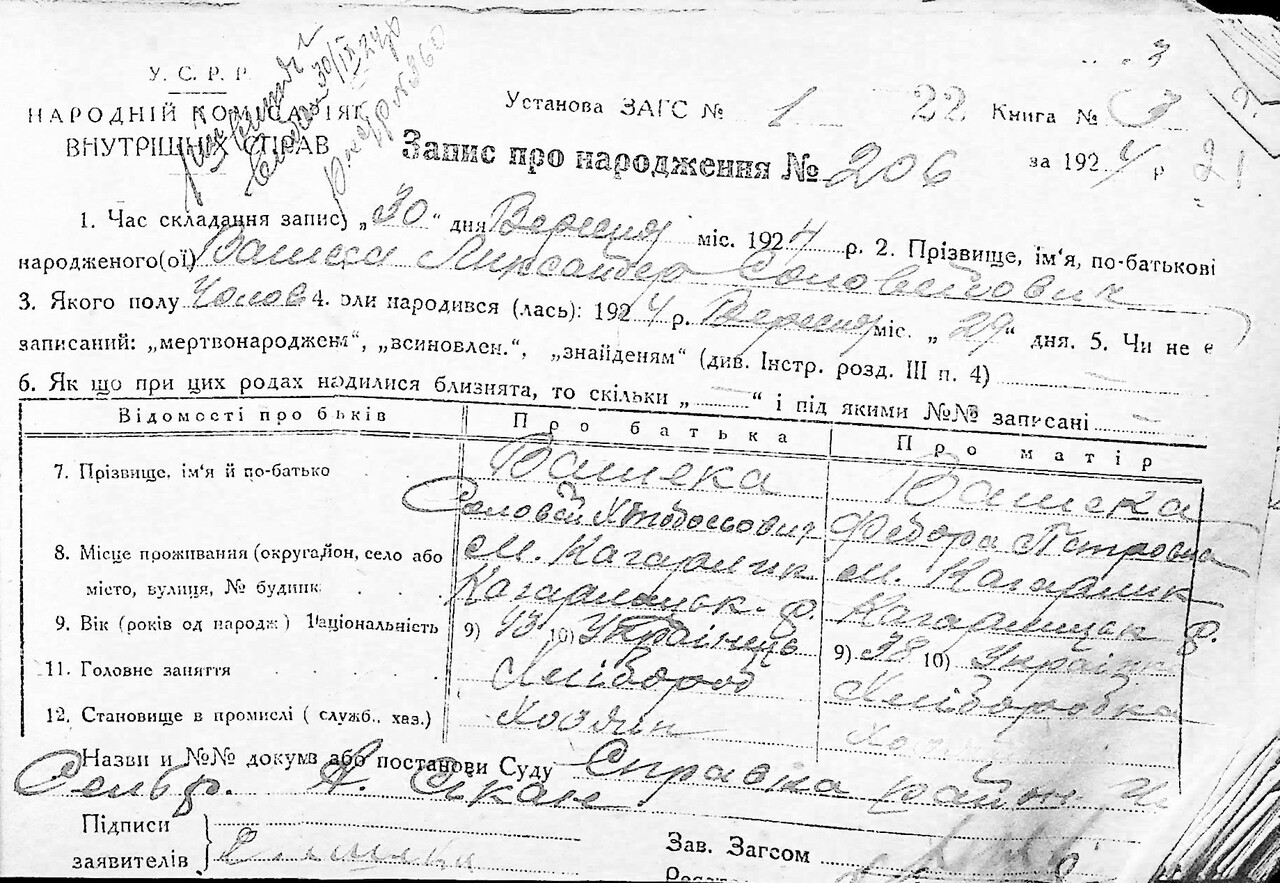 У. С. Р. Р.
НАРОДНІЙ КОМІСАРІЯТ
ВНУТРІШНІХ СПРАВ
30/IX-24р
№ 860
Установа ЗАГС № 1 22 Книга № 3
Запис про народження № 206 за 1924 р 21
1. Час складання запису „30“ дня Вересня міс. 1924 р. 2. Прізвище, ім'я, по-батькові
народженого(ої) Вашека Ликсандер Соловейович
3. Якого полу Чолов 4. Коли народився (лась): 1924 р. Вересня міс. „29“ дня. 5. Чи не є
записаний: „мертвонароджени“, „всиновлен.“, „знайденям“ (див. Інстр. розд. III п. 4) —
6. Як що при цих родах находилися близнята, то скільки „—“ і під якими №№ записані —
Відомості про батьків Про батька Про матір
7. Прізвище, ім'я й по-батько Вашека Вашека
Соловей Федора Петровна
8. Місце проживання (округа, район, село або м. Кагарлик м. Кагарлик
місто, вулиця, № будинк. Кагарлицьк. р. Кагарлицьк р.
9. Вік (років од народж) Національність 9) 43 10) Українець 9) 38 10) Україн
11. Головне заняття Хлібороб Хліборобка
12. Становище в промислі ( служб., хаз.) Хозяин
Назви и №№ докумв або постанови Суду Справка район
Сельб.
Підписи
заявителів
Зав. Загсом